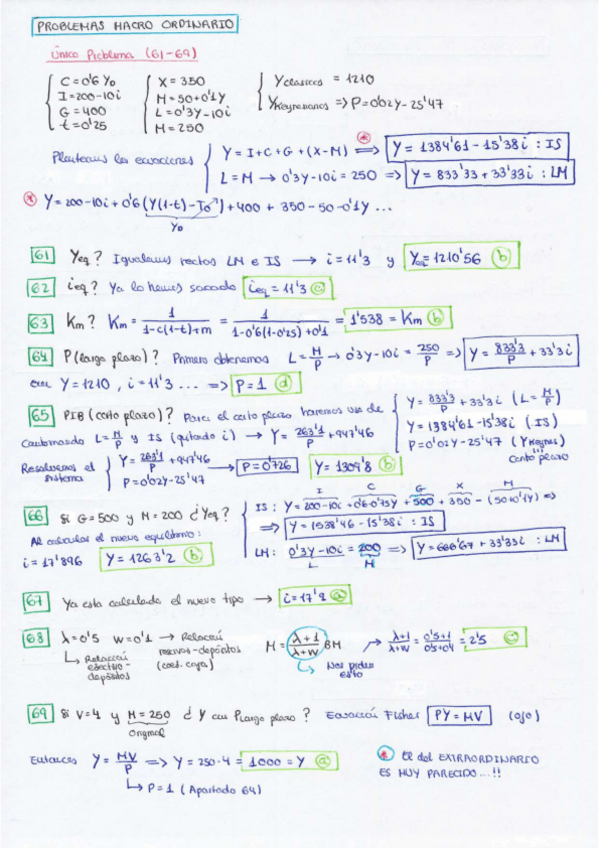 PROBLEMAS MACRO ORDINARIO
Único Problema (61-69)
C = 0'6 Yd
I = 200-10i
G = 400
t = 0'25
X = 350
M = 50+0'1Y
L = 0'3Y-10i
M = 250
Yclasicos = 1210
YKeynesianos => P=0'02Y-25'47
Planteamos las ecuaciones
Y = I+C+G+(X-M) => Y = 1384'61 - 15'38i : IS
L = M → 0'3Y-10i = 250 => Y = 833'33 + 33'33i : LM
* Y = 200-10i + 0'6(Y(1-t)-To) + 400 + 350 - 50 - 0'1Y ...
Yd
61 Yeq? Igualamos rectas LM e IS → i = 11'3 y Yeq = 1210'56 b
62 ieq? Ya lo hemos sacado ieq = 11'3 a
63 Km? Km = 1/(1-c(1-t)+m) = 1/(1-0'6(1-0'25)+0'1) = 1'538 = Km b
64 P(largo plazo)? Primero obtenemos L = M/P → 0'3Y-10i = 250/P => Y = 833'3/P + 33'3i
con Y = 1210, i = 11'3 ... => P = 1 d
65 PIB (corto plazo)? Para el corto plazo haremos uso de
Y = 833'3/P + 33'3i (L = M/P)
Y = 1384'61 - 15'38i (IS)
P = 0'02Y - 25'47 (YKeynes)
Corto plazo
Combinando L = M/P y IS (quitando i) → Y = 263'1/P + 947'46
Resolvemos el sistema
Y = 263'1/P + 947'46
P = 0'02Y - 25'47
→ P = 0'726 Y = 1309'8 b
66 Si G=500 y M=200 ¿Yeq?
I C G X M
IS: Y = 200-10i + 0'6·0'75Y + 500 + 350 - (50+0'1Y) =>
=> Y = 1538'46 - 15'38i : IS
Al calcular el nuevo equilibrio:
i = 17'896 Y = 1263'2 b
LM: 0'3Y-10i = 200 => Y = 666'67 + 33'33i : LM
L M
67 Ya esta calculado el nuevo tipo → i = 17'9 a
68 λ = 0'5 w = 0'1 → Relación reservas-depósitos (coef. caja)
Relación efectivo-depósitos
M = (λ+1)/(λ+w) BM
Nos piden esto
(λ+1)/(λ+w) = (0'5+1)/(0'5+0'1) = 2'5 c
69 Si V=4 y M=250 ¿Y con Plargo plazo? Ecuación Fisher PY = MV (ojo)
Original
Entonces Y = MV/P => Y = 250·4 = 1000 = Y a
P = 1 (Apartado 64)
* El del EXTRAORDINARIO
ES MUY PARECIDO...!!